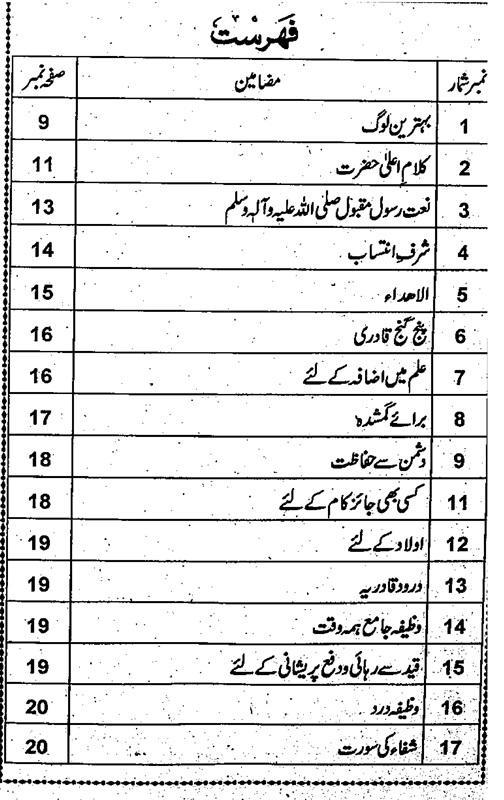 فہرست
نمبر شمار مضامین صفحہ نمبر
1 بہترین لوگ 9
2 کلام اعلیٰ حضرت 11
3 نعت رسول مقبول صلی اللہ علیہ وآلہ وسلم 13
4 شرفِ انتساب 14
5 الاھداء 15
6 پنج گنج قادری 16
7 علم میں اضافہ کے لئے 16
8 برائے گمشدہ 17
9 دشمن سے حفاظت 18
11 کسی بھی جائز کام کے لئے 18
12 اولاد کے لئے 19
13 درود قادریہ 19
14 وظیفہ جامع ہمہ وقت 19
15 قید سے رہائی و دفع پریشانی کے لئے 19
16 وظیفہ درد 20
17 شفاء کی سورت 20